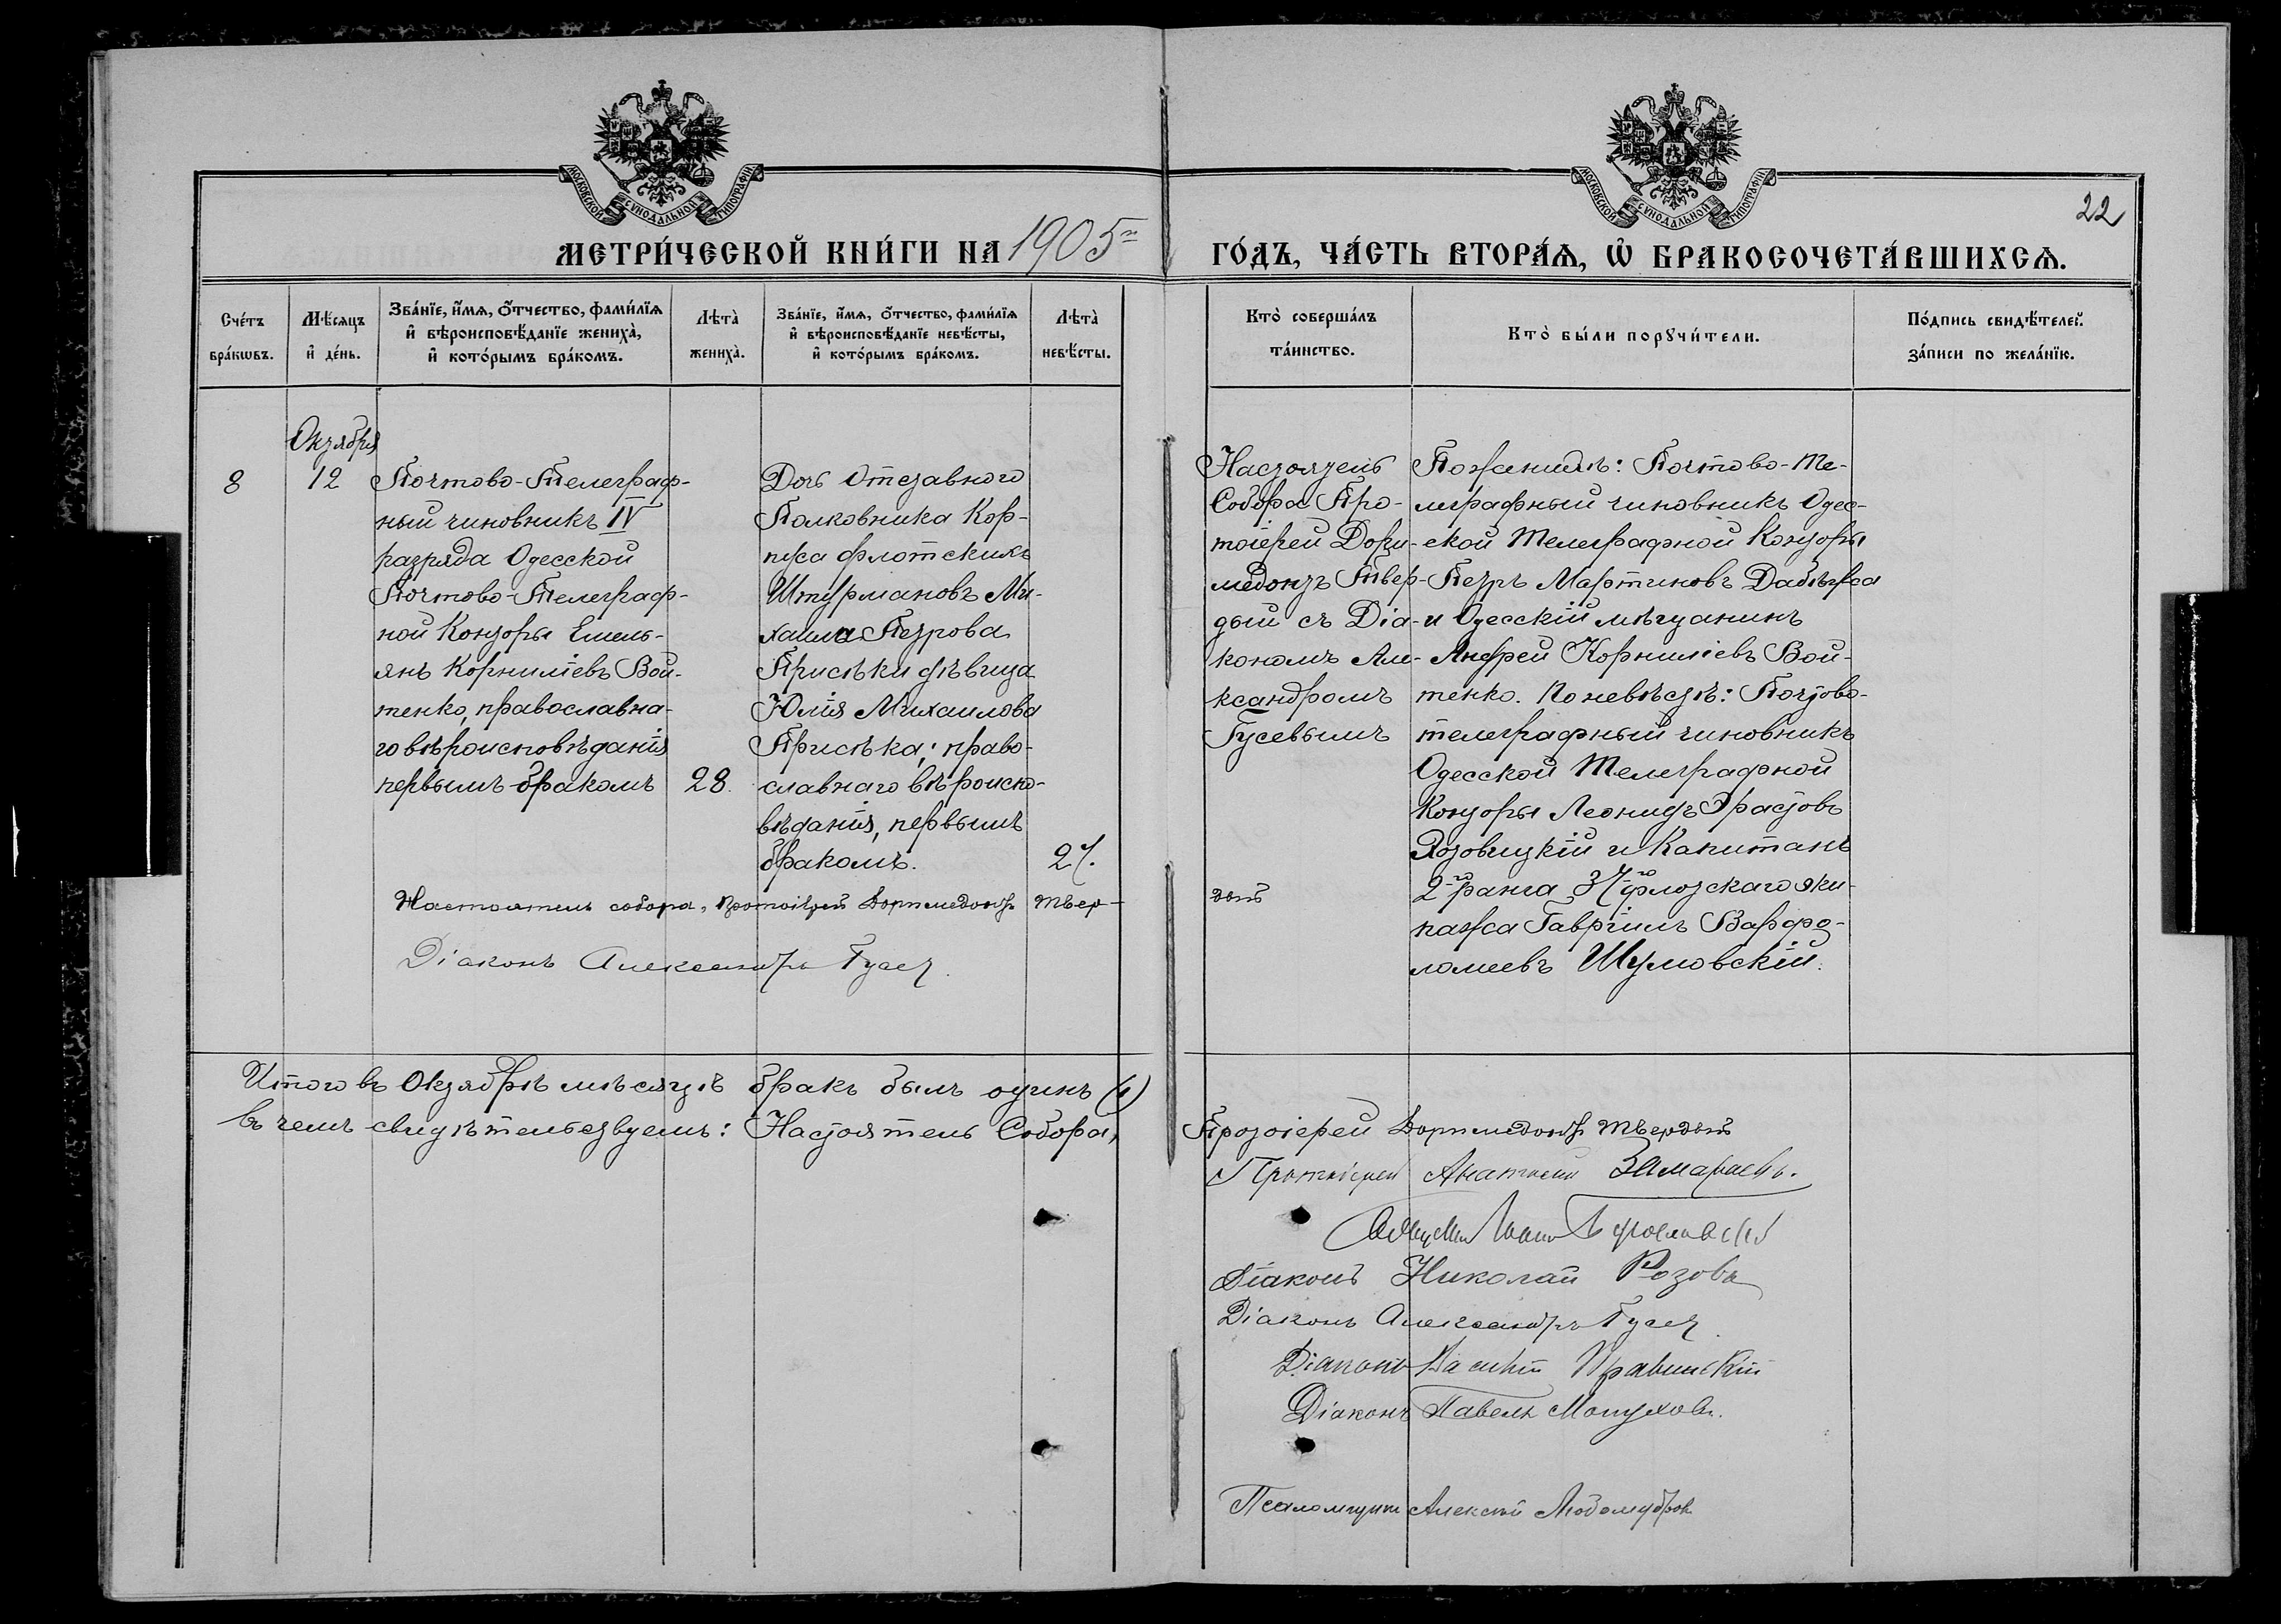 МОСКОВСКОЙ СѴНОДАЛЬНОЙ ТИПОГРАФІИ
МОСКОВСКОЙ СѴНОДАЛЬНОЙ ТИПОГРАФІИ
22
МЕТРИ́ЧЕСКОЙ КНИ́ГИ НА 1905 го́дъ, ЧА́СТЬ ВТОРА́Ѧ, Ѡ҆ БРАКОСОЧЕТА́ВШИХСѦ.
Сче́тъ бра́кѡвъ.
Мѣ́сяцъ и҆ де́нь.
Зва́нїе, и҆́мѧ, ѻ҆́тчество, фами́лїѧ
и҆ вѣроисповѣ́данїе жениха̀,
и҆ кото́рымъ бра́комъ.
Лѣта̀ жениха̀.
Зва́нїе, и҆́мѧ, ѻ҆́тчество, фами́лїѧ
и҆ вѣроисповѣ́данїе невѣ́сты,
и҆ кото́рымъ бра́комъ.
Лѣта̀ невѣ́сты.
Кто̀ соверша́лъ та́инство.
Кто̀ бы́ли порꙋчи́тели.
По́дпись свидѣ́телей
за́писи по жела́нїю.
Октября
8
12
Почтово-Телеграф-
ный чиновникъ IV
разряда Одесской
Почтово-Телеграф-
ной Конторы Емель-
янъ Корниліевъ Вой-
тенко, православна-
го вѣроисповѣданія
первымъ бракомъ
28.
Дочь Отставного
Полковника Кор-
пуса флотскихъ
Штурмановъ Ми-
хаила Петрова
Присѣки дѣвица
Юлія Михаилова
Присѣка; право-
славнаго вѣроиспо-
вѣданія, первымъ
бракомъ.
27.
Настоятель
Собора Про-
тоіерей Дори-
медонтъ Твер-
дый съ Діа-
кономъ Але-
ксандромъ
Гусевымъ
По женихѣ: Почтово-Те-
леграфный чиновникъ Одес-
ской Телеграфной Конторы
Петръ Мартиновъ Дабѣжа
и Одесскій мѣщанинъ
Андрей Корниліевъ Вой-
тенко. По невѣстѣ: Почтово-
телеграфный чиновникъ
Одесской Телеграфной
Конторы Леонидъ Эрастовъ
Язовицкій и Капитанъ
2-го ранга 37-го флотскаго эки-
пажа Гавріилъ Варфо-
ломеевъ Шумовскій.
Настоятель собора, протоіерей Доримедонтъ Твер-
дый
Діаконъ Александръ Гусев
Итого въ Октябрѣ мѣсяцѣ бракъ былъ одинъ (1)
въ чемъ свидѣтельствуемъ: Настоятель Собора,
Протоіерей Доримедонтъ Твердый
Протоіерей Анатолій Замараевъ.
Діаконъ Николай Розовъ
Діаконъ Александръ Гусев
Діаконъ Василій Правинскій
Діаконъ Павелъ
Псаломщикъ Алексѣй Любомудров